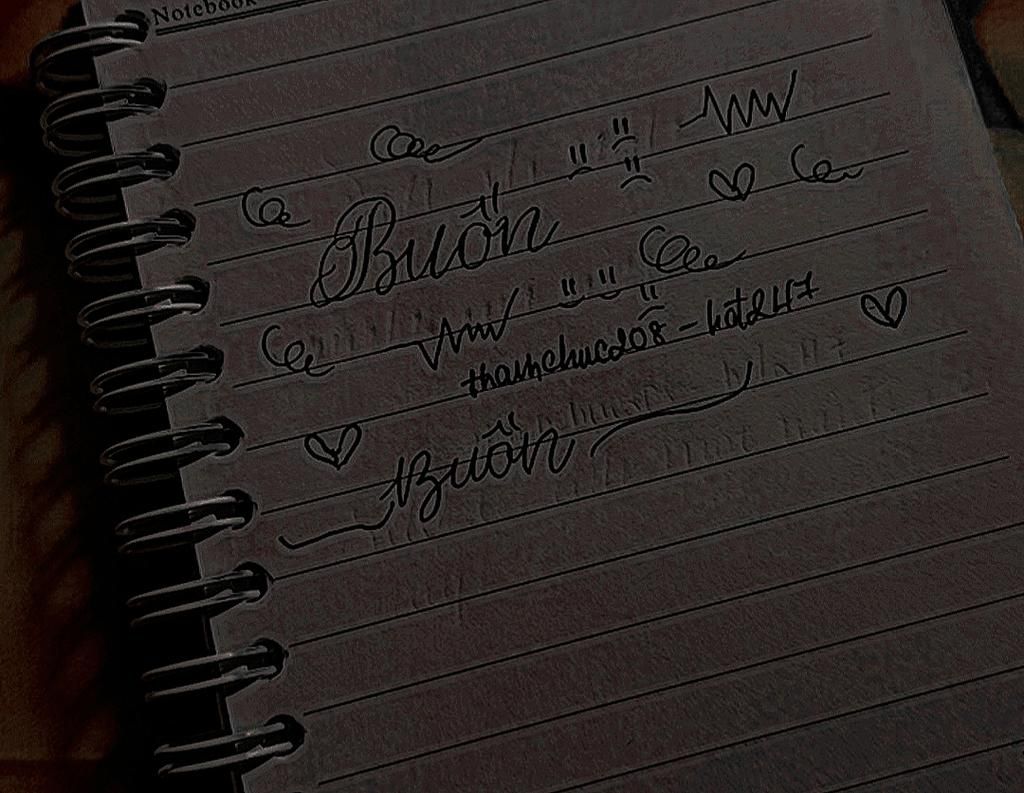 Notebook
Buồn
thamchuc208 - hot247
Buồn